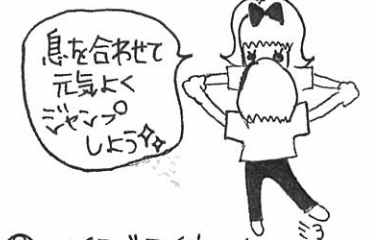 息を合わせて
元気よく
ジャンプ
しよう